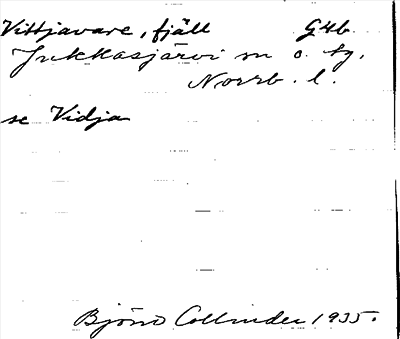 Vittjavare, fjäll G4b.
Jukkasjärvi sn o. tg.
Norrb. l.
se Vidja
Björn Collinder 1935.